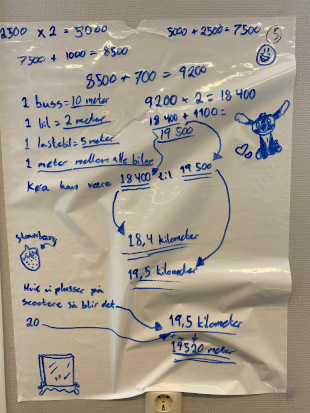 2500 x 2 = 5000
5000 + 2500 = 7500
5
7500 + 1000 = 8500
8500 + 700 = 9200
1 buss = 10 meter
1 bil = 2 meter
1 lastebil = 5 meter
1 meter mellom alle biler
9200 x 2 = 18 400
18 400 + 1100 =
19 500
Køa kan være 18 400 til 19 500
18,4 kilometer
19,5 kilometer
Strawbary
Hvis vi plusser på
scootere så blir det
20
19,5 kilometer
19520 meter